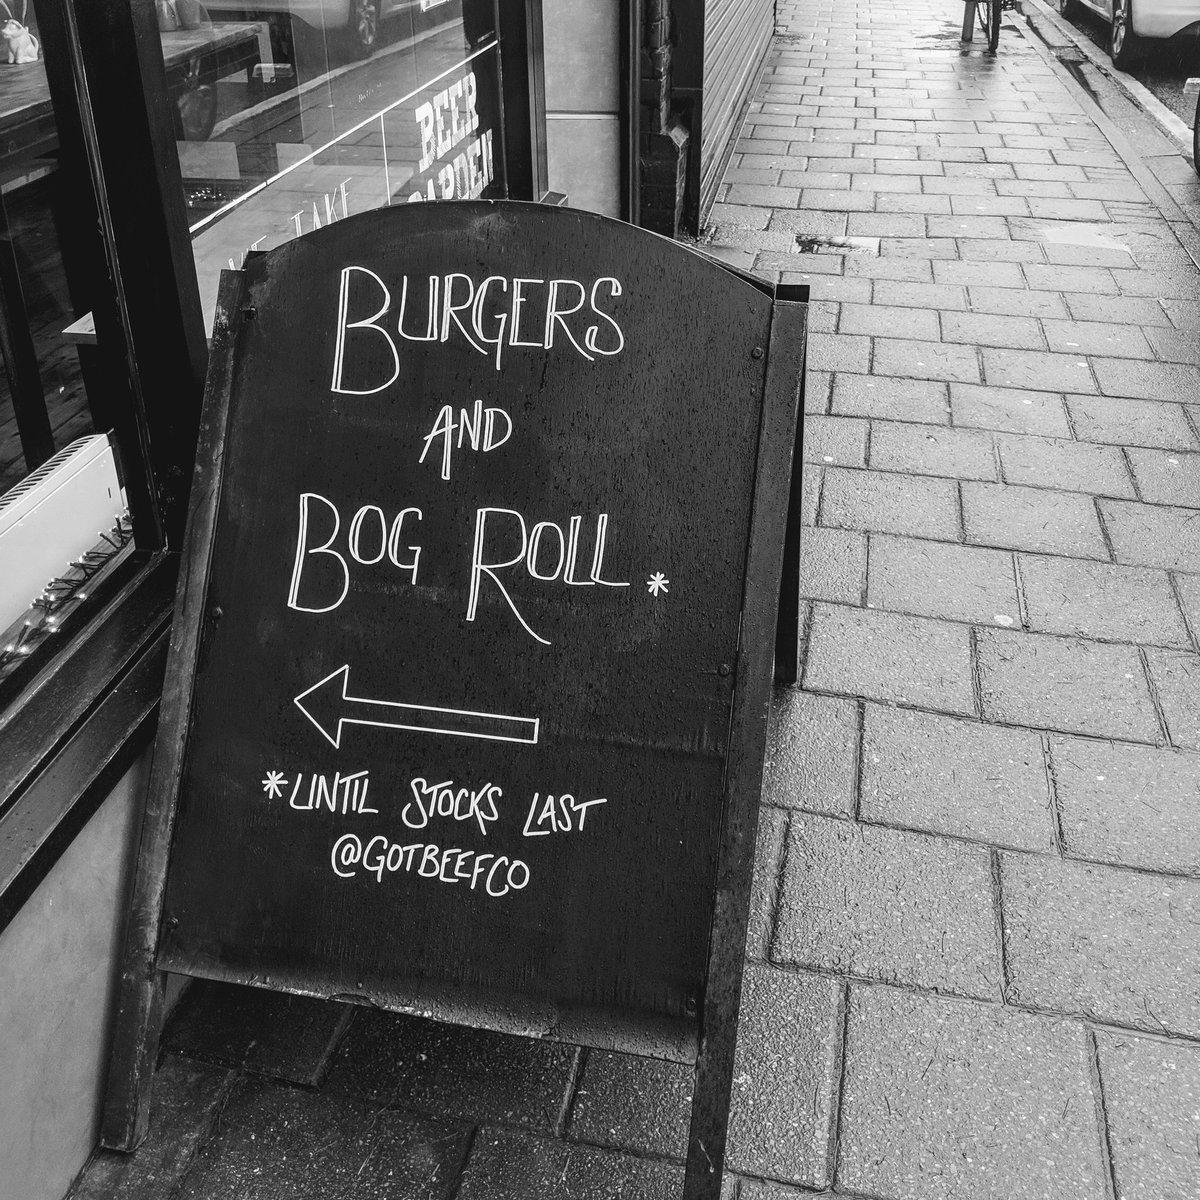 BEER
GARDEN
TAKE
BURGERS
AND
BOG ROLL*
*UNTIL STOCKS LAST
@GOTBEEFCO